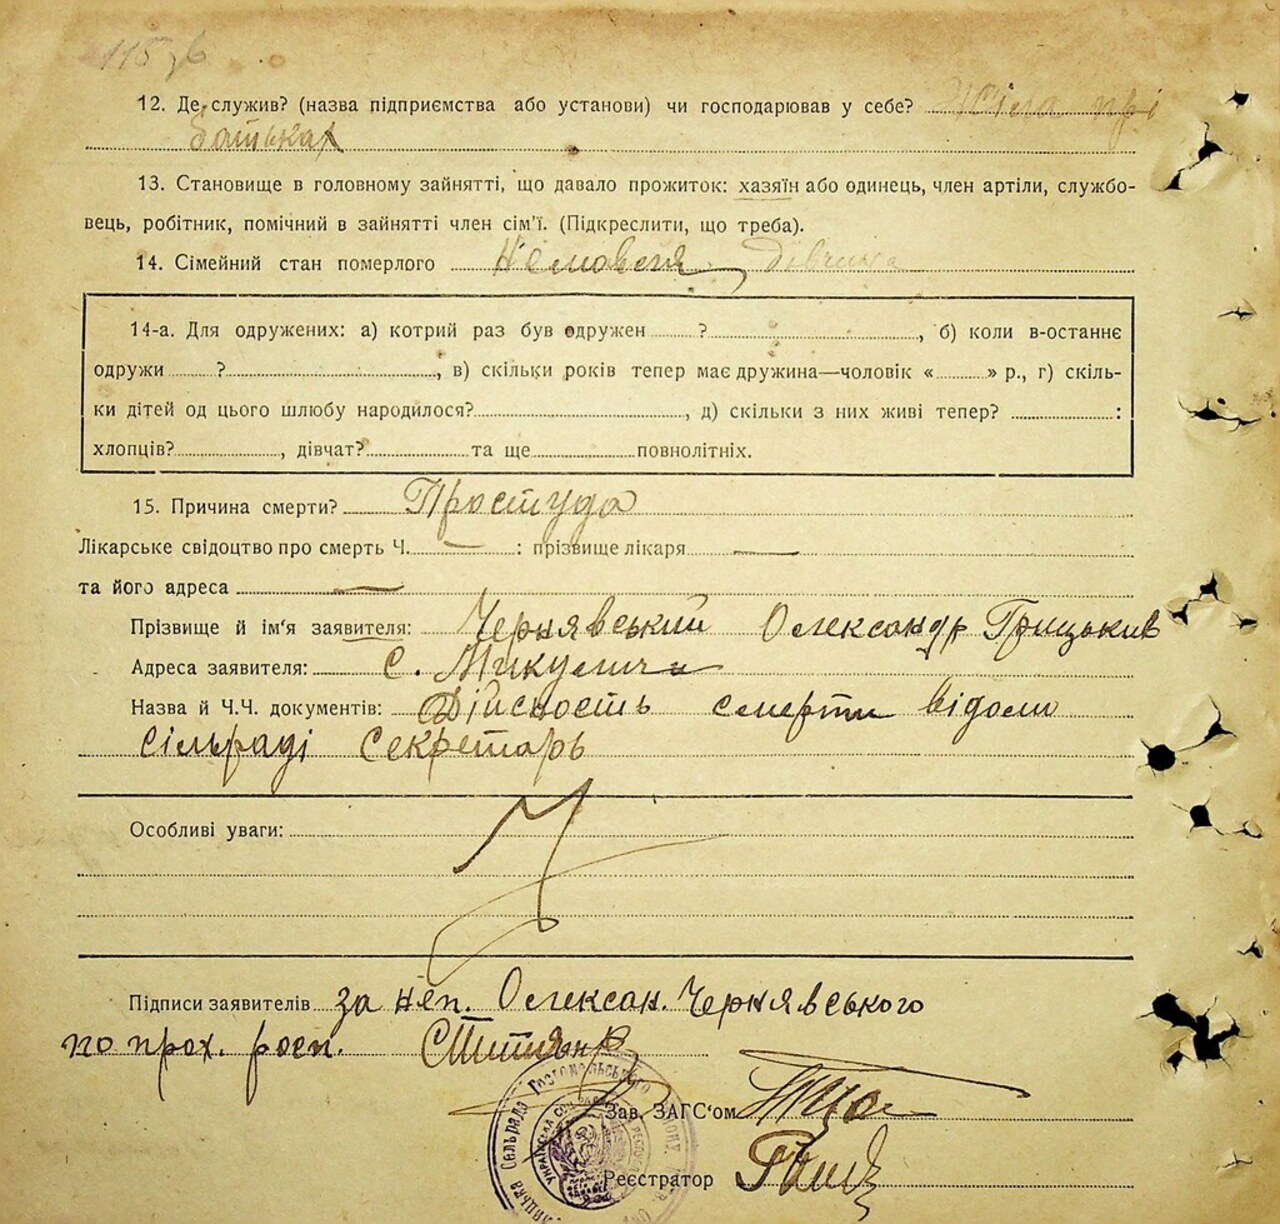 115 зв
12. Де служив? (назва підприємства або установи) чи господарював у себе? Жила прі
батьках
13. Становище в головному зайнятті, що давало прожиток: хазяїн або одинець, член артіли, службо-
вець, робітник, помічний в зайнятті член сім'ї. (Підкреслити, що треба).
14. Сімейний стан померлого Немовля дівчина
14-а. Для одружених: а) котрий раз був одружен ? , б) коли в-останнє
одружи ? , в) скільки років тепер має дружина—чоловік « » р., г) скіль-
ки дітей од цього шлюбу народилося? , д) скільки з них живі тепер? :
хлопців? , дівчат? та ще повнолітніх.
15. Причина смерти? Простуда
Лікарське свідоцтво про смерть Ч. — : прізвище лікаря —
та його адреса —
Прізвище й ім'я заявителя: Чернявський Олександр Грицьків
Адреса заявителя: с. Микуличи
Назва й Ч.Ч. документів: Дійсность смерти відомо
сільраді секретарь
Особливі уваги:
Підписи заявителів за неп. Олексан. Чернявського
по прох. росп.
Зав. ЗАГС'ом
Реєстратор
Сельрада Гостомельського